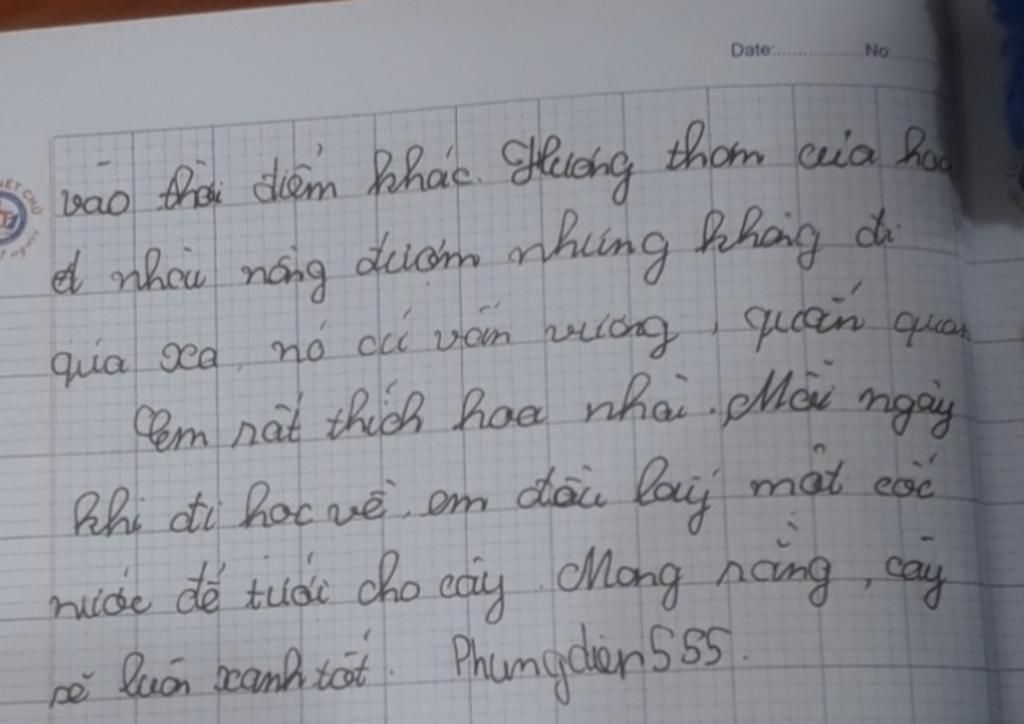 Date: No:
vào thời điểm khác. Hương thơm của hoa
nhài nồng đượm nhưng không đi
quá xa, nó cứ vấn vương, quấn quan
Em rất thích hoa nhài. Mỗi ngày
khi đi học về, em đều lấy một cốc
nước để tưới cho cây. Mong rằng, cây
sẽ luôn xanh tốt. Phungdien555.